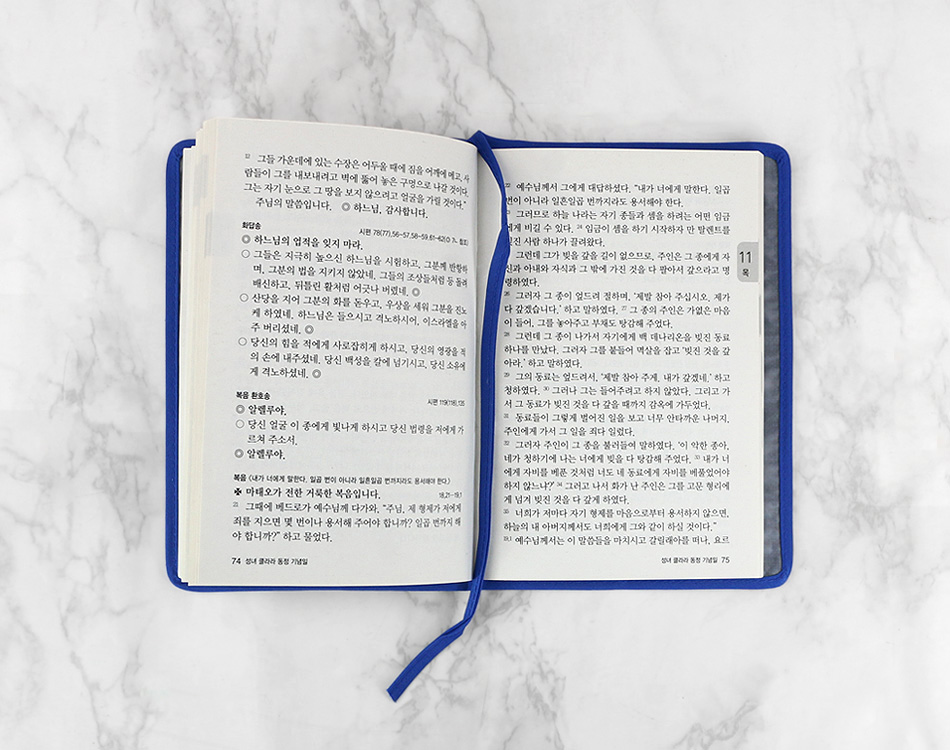 12 그들 가운데에 있는 수장은 어두울 때에 짐을 어깨에 메고, 사
람들이 그를 내보내려고 벽에 뚫어 놓은 구멍으로 나갈 것이다.
그는 자기 눈으로 그 땅을 보지 않으려고 얼굴을 가릴 것이다.”
주님의 말씀입니다. ◎ 하느님, 감사합니다.
화답송
시편 78(77),56-57.58-59.61-62(◎ 7ㄴ 참조)
◎ 하느님의 업적을 잊지 마라.
○ 그들은 지극히 높으신 하느님을 시험하고, 그분께 반항하
며, 그분의 법을 지키지 않았네. 그들의 조상들처럼 등 돌려
배신하고, 뒤틀린 활처럼 어긋나 버렸네. ◎
○ 산당을 지어 그분의 화를 돋우고, 우상을 세워 그분을 진노
케 하였네. 하느님은 들으시고 격노하시어, 이스라엘을 아
주 버리셨네. ◎
○ 당신의 힘을 적에게 사로잡히게 하시고, 당신의 영광을 적
의 손에 내주셨네. 당신 백성을 칼에 넘기시고, 당신 소유에
게 격노하셨네. ◎
복음 환호송
시편 119(118),135
◎ 알렐루야.
○ 당신 얼굴 이 종에게 빛나게 하시고 당신 법령을 저에게 가
르쳐 주소서.
◎ 알렐루야.
복음 〈내가 너에게 말한다. 일곱 번이 아니라 일흔일곱 번까지라도 용서해야 한다.〉
✠ 마태오가 전한 거룩한 복음입니다.
18,21─19,1
21 그때에 베드로가 예수님께 다가와, “주님, 제 형제가 저에게
죄를 지으면 몇 번이나 용서해 주어야 합니까? 일곱 번까지 해
야 합니까?” 하고 물었다.
74 성녀 클라라 동정 기념일
22 예수님께서 그에게 대답하셨다. “내가 너에게 말한다. 일곱
번이 아니라 일흔일곱 번까지라도 용서해야 한다.
23 그러므로 하늘 나라는 자기 종들과 셈을 하려는 어떤 임금
에게 비길 수 있다. 24 임금이 셈을 하기 시작하자 만 탈렌트를
빚진 사람 하나가 끌려왔다.
그런데 그가 빚을 갚을 길이 없으므로, 주인은 그 종에게 자
신과 아내와 자식과 그 밖에 가진 것을 다 팔아서 갚으라고 명
령하였다.
26 그러자 그 종이 엎드려 절하며, ‘제발 참아 주십시오. 제가
다 갚겠습니다.’ 하고 말하였다. 27 그 종의 주인은 가엾은 마음
이 들어, 그를 놓아주고 부채도 탕감해 주었다.
28 그런데 그 종이 나가서 자기에게 백 데나리온을 빚진 동료
하나를 만났다. 그러자 그를 붙들어 멱살을 잡고 ‘빚진 것을 갚
아라.’ 하고 말하였다.
29 그의 동료는 엎드려서, ‘제발 참아 주게. 내가 갚겠네.’ 하고
청하였다. 30 그러나 그는 들어주려고 하지 않았다. 그리고 가
서 그 동료가 빚진 것을 다 갚을 때까지 감옥에 가두었다.
31 동료들이 그렇게 벌어진 일을 보고 너무 안타까운 나머지,
주인에게 가서 그 일을 죄다 일렀다.
32 그러자 주인이 그 종을 불러들여 말하였다. ‘이 악한 종아,
네가 청하기에 나는 너에게 빚을 다 탕감해 주었다. 33 내가 너
에게 자비를 베푼 것처럼 너도 네 동료에게 자비를 베풀었어야
하지 않느냐?’ 34 그러고 나서 화가 난 주인은 그를 고문 형리에
게 넘겨 빚진 것을 다 갚게 하였다.
35 너희가 저마다 자기 형제를 마음으로부터 용서하지 않으면,
하늘의 내 아버지께서도 너희에게 그와 같이 하실 것이다.”
19,1 예수님께서는 이 말씀들을 마치시고 갈릴래아를 떠나, 요르
성녀 클라라 동정 기념일 75
11
목